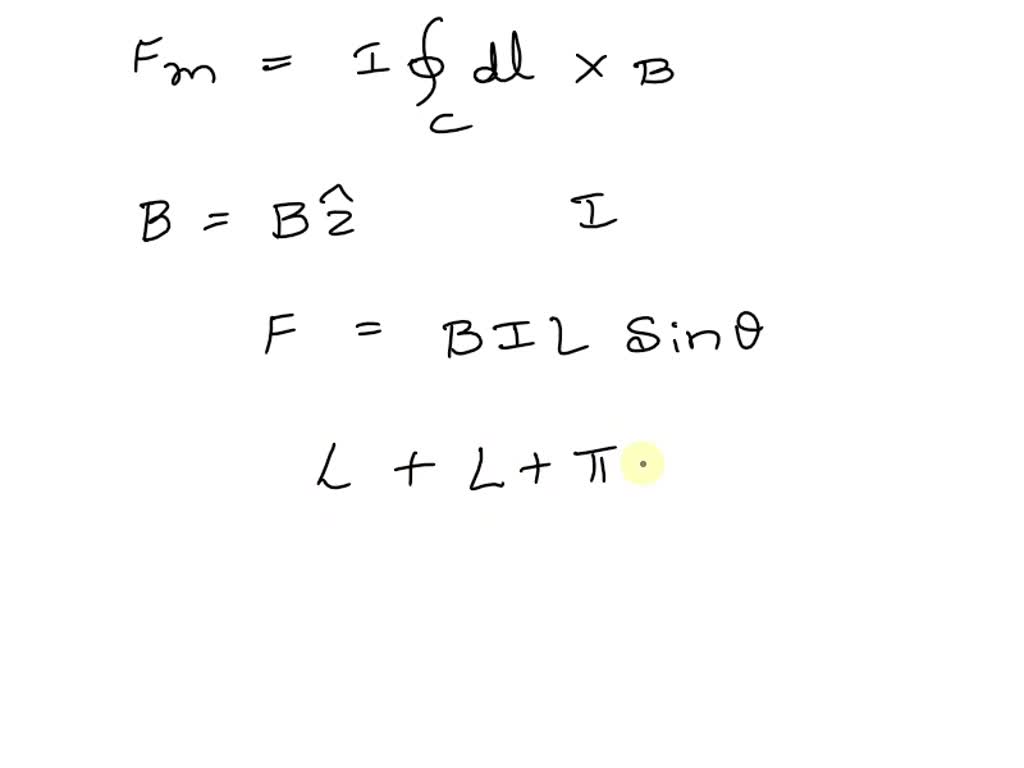 Fm = I ∮ dl × B
C
B = B ẑ I
F = B I L Sinθ
L + L + π